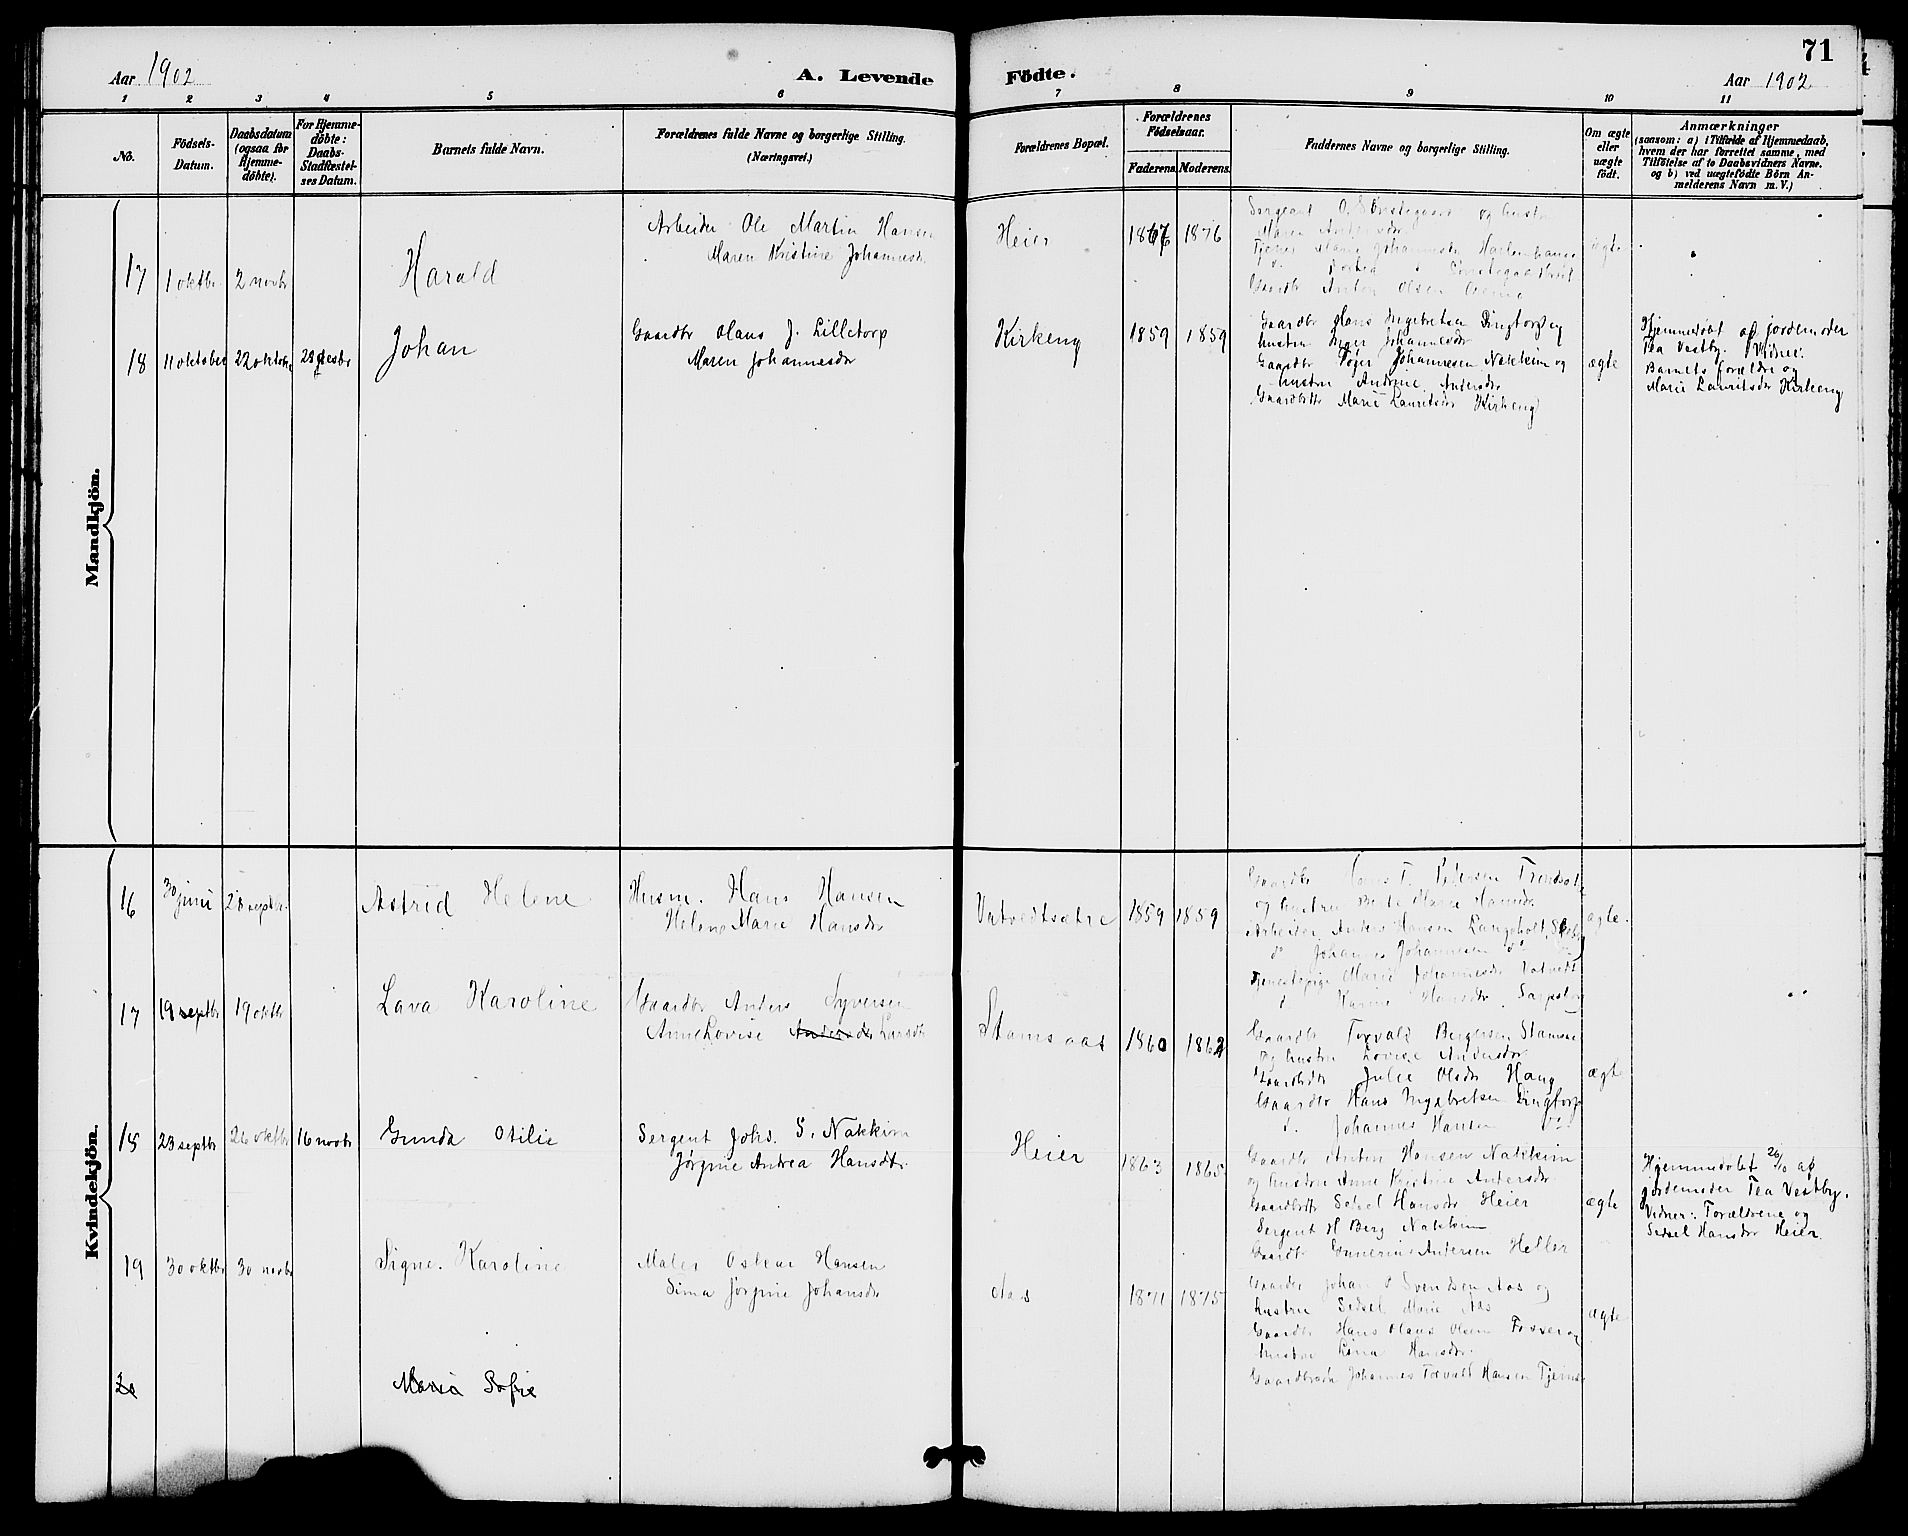 Aar 1902
A. Levende
Födte.
Aar 1902
71
1 2 3 4 5 6 7 8 9 10 11
No.
Födsels-
Datum.
Daabsdatum
(ogsaa for
Hjemme-
döbte).
For Hjemme-
döbte:
Daabs-
Stadfæstel-
ses Datum.
Barnets fulde Navn.
Forældrenes fulde Navne og borgerlige Stilling.
(Næringsvei.)
Forældrenes Bopæl.
Forældrenes
Födselsaar.
Faderens. Moderens.
Faddernes Navne og borgerlige Stilling.
Om ægte
eller
uægte
födt.
Anmærkninger
(saasom: a) i Tilfælde af Hjemmedaab,
hvem der har forrettet samme, med
Tilföielse af to Daabsvidners Navne.
og b) ved uægtefödte Börn An-
melderens Navn m. V.)
Mandkjön.
17 1 oktbr. 2 novbr
Harald
Arbeider Ole Martin Hansen
Maren Kristine Johannesdr
Heier
1867 1876
Sergeant O. Sønstegaard og hustru
Maren Andersdr
Marie Johannesdr
Gaardbr Anton Olsen
ægte
18 11 oktober 22 oktober 28 desbr
Johan
Gaardbr Hans J. Lilletorp
Maren Johannesdr
Kirkeng
1859 1859
Gaardbr Hans Ingebretsen Lingtorp og
hustru Inger Johannesdr
Gaardbr Johannesen Nakkim og
hustru Andrine Andersdr
Gaardbdtr Marie Lauritsdr Kirkeng
ægte
Hjemmedøbt af jordemoder
Tea Vestby. Vidner:
Barnets forældre og
Marie Lauritsdr Kirkeng
Kvindekjön.
16 30 juni 28 septbr.
Astrid Helene
Husm. Hans Hansen
Helene Marie Hansdr
Vatvedtsætre
1859 1859
Gaardbr Hans T. Pedersen
og hustru Berte Marie Hansdr
Arbeider Anders Hansen Langeholt,
do Johannes Johannesen do
Tjenestepige Marie Johannesdr Vatvedt
d. Karine Hansdr Sarpsborg
ægte.
17 19 septbr 19 oktbr
Lava Karoline
Gaardbr Anders Syversen
Anne Lovise Larsdtr
Stamsaas
1860 1862
Gaardbr Torvald Bergersen Stamsaas
og hustru Lovise Andersdr
Gaardbdtr Julie Olsdr Haug
Gaardbr Hans Ingebretsen Lingtorp
d. Johannes Hansen do
ægte
18 23 septbr 26 oktbr 16 novbr
Gunda Otilie
Sergent Johs. S. Nakkim
Jørgine Andrea Hansdtr.
Heier
1863 1865
Gaardbr Anton Hansen Nakkim
og hustru Anne Kristine Andersdr
Gaardbdtr Sedsel Hansdr Heier
Sergent H Berg Nakkim
Gaardbr Gunerius Andersen Heller
ægte
Hjemmedøbt 26/10 af
jordemoder Tea Vestby.
Vidner: Forældrene og
Sedsel Hansdr Heier.
19 30 oktbr 30 novbr
Signe Karoline
Maler Oskar Hansen
Sina Jørgine Johansdr
Aas
1871 1875
Gaardbr Johan Svendsen Aas og
hustru Sedsel Marie Aas
Gaardbr Hans Olaus Olsen Fosser og
hustru Lina Hansdr.
Gaardbrsøn Johannes Torvald Hansen
ægte
20
Maria Sofie